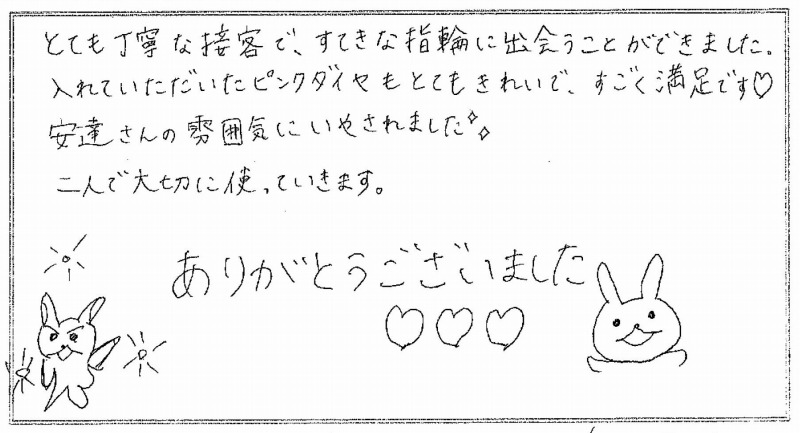 とても丁寧な接客で、すてきな指輪に出会うことができました。
入れていただいたピンクダイヤもとてもきれいで、すごく満足です♡
安達さんの雰囲気にいやされました✧✧
二人で大切に使っていきます。
ありがとうございました
♡♡♡